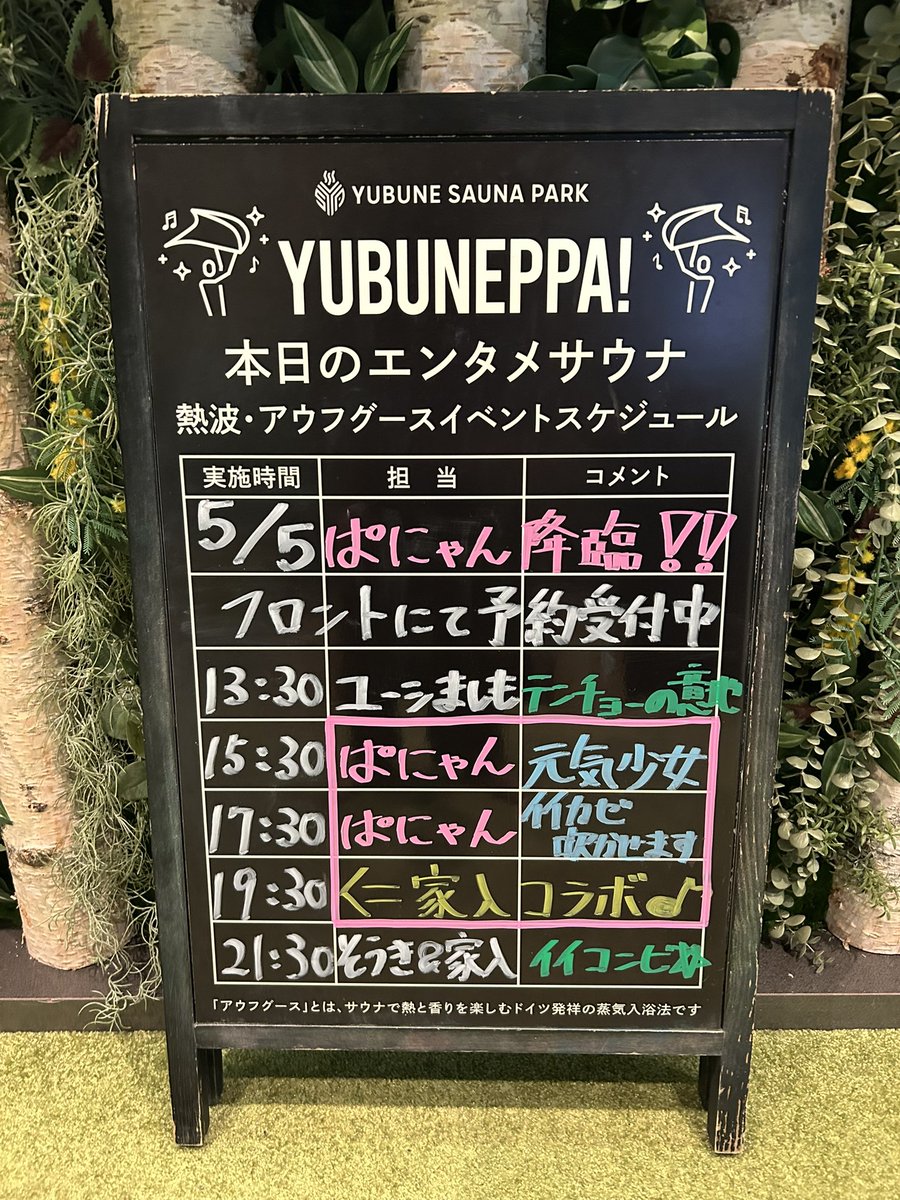 YUBUNE SAUNA PARK
YUBUNEPPA!
本日のエンタメサウナ
熱波・アウフグースイベントスケジュール
実施時間 担当 コメント
5/5 ぱにゃん 降臨!!
フロントにて予約受付中
13:30 ユーシましも テンチョーの意地
15:30 ぱにゃん 元気少女
17:30 ぱにゃん イイカゼ吹かせます
19:30 くニ家入 コラボ♪
21:30 そうき&家入 イイコンビ
「アウフグース」とは、サウナで熱と香りを楽しむドイツ発祥の蒸気入浴法です